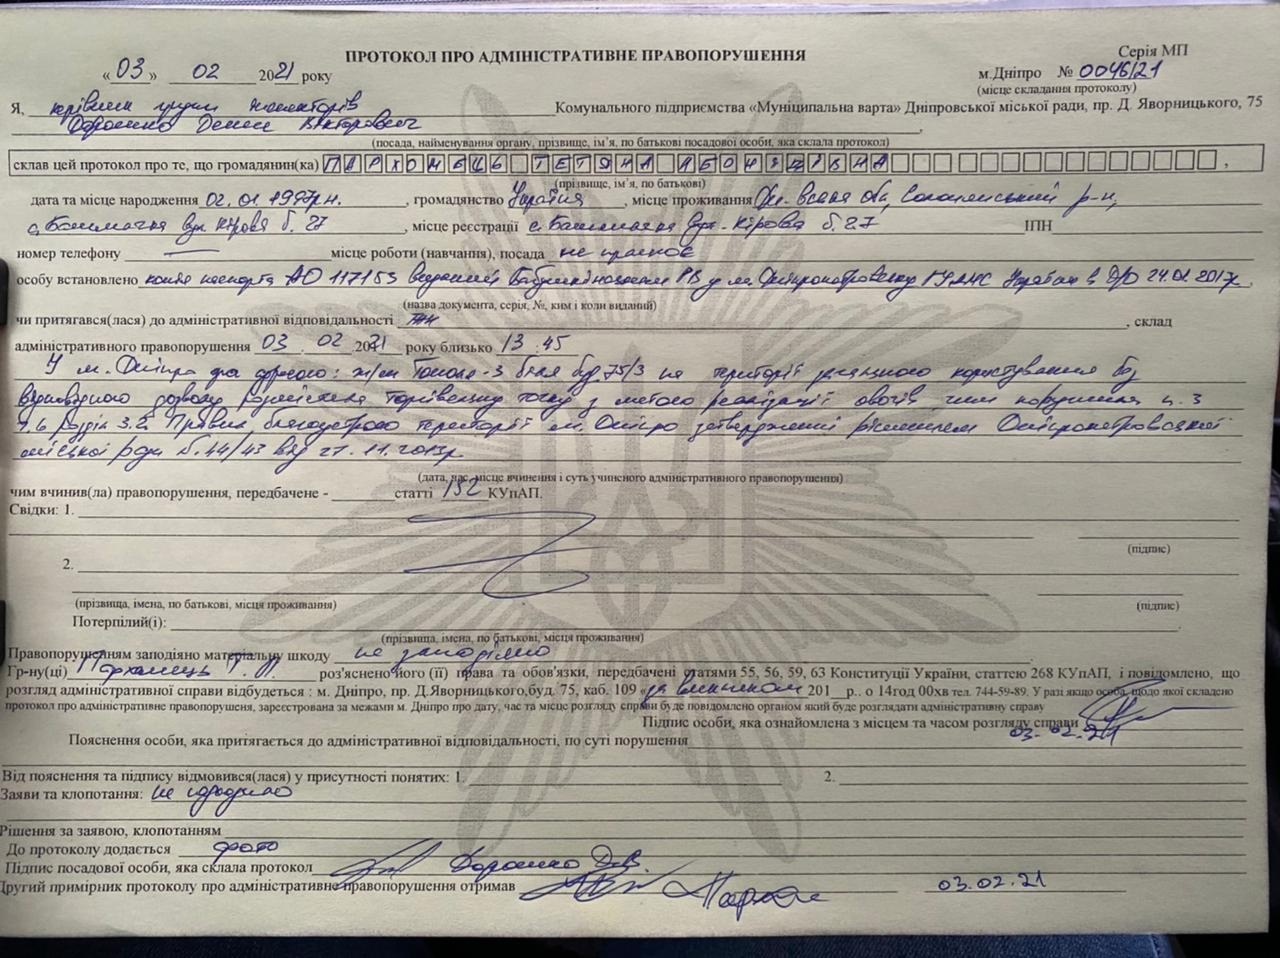 ПРОТОКОЛ ПРО АДМІНІСТРАТИВНЕ ПРАВОПОРУШЕННЯ
Серія МП
«03» 02 2021 року
м.Дніпро № 0046/21
(місце складання протоколу)
Я, керівник групи інспекторів Комунального підприємства «Муніципальна варта» Дніпровської міської ради, пр. Д. Яворницького, 75
Дорошко Денис Вікторович ,
(посада, найменування органу, прізвище, ім’я, по батькові посадової особи, яка склала протокол)
склав цей протокол про те, що громадянин(ка) ТЕТЯНА ,
(прізвище, ім’я, по батькові)
дата та місце народження 02.01.1997р.н. , громадянство Україна , місце проживання обл, Солонянський р-н,
с. Башмачка вул. Кірова б. 27 , місце реєстрації с. Башмачка вул. Кірова б. 27 ІПН
номер телефону — місце роботи (навчання), посада не працює
особу встановлено копія паспорта АО 117153 виданий Бабушкінським РВ у м. Дніпропетровську ГУДМС України в Д/О 24.01.2017р.
(назва документа, серія, №, ким і коли виданий)
чи притягався(лася) до адміністративної відповідальності , склад
адміністративного правопорушення 03 . 02 .2021 року близько 13 : 45
У м. Дніпро за адресою: ж/м Тополя-3 біля буд. 75/3 на території загального користування без
відповідного дозволу розмістила торгівельну точку з метою реалізації овочів чим порушила п. 3
розділ 3.2 Правил благоустрою території м. Дніпро затверджений рішенням Дніпропетровської
міської ради №44/43 від 27.11.2013р.
(дата, час, місце вчинення і суть учиненого адміністративного правопорушення)
чим вчинив(ла) правопорушення, передбачене - статті 152 КУпАП.
Свідки: 1.
(підпис)
2.
(прізвища, імена, по батькові, місця проживання)
(підпис)
Потерпілий(і):
(прізвища, імена, по батькові, місця проживання)
Правопорушенням заподіяно матеріальну шкоду не заподіяно
Гр-ну(ці) роз'яснено його (її) права та обов'язки, передбачені статями 55, 56, 59, 63 Конституції України, статтею 268 КУпАП, і повідомлено, що
розгляд адміністративної справи відбудеться : м. Дніпро, пр. Д.Яворницького,буд. 75, каб. 109 «за викликом 201__р.. о 14год 00хв тел. 744-59-89. У разі якщо особа, щодо якої складено
протокол про адміністративне правопорушення, зареєстрована за межами м. Дніпро про дату, час та місце розгляду справи буде повідомлено органом який буде розглядати адміністративну справу
Підпис особи, яка ознайомлена з місцем та часом розгляду справи
03.02.21
Пояснення особи, яка притягається до адміністративної відповідальності, по суті порушення
Від пояснення та підпису відмовився(лася) у присутності понятих: 1. 2.
Заяви та клопотання: не
Рішення за заявою, клопотанням
До протоколу додається фото
Підпис посадової особи, яка склала протокол Дорошко Д.В.
Другий примірник протоколу про адміністративне правопорушення отримав 03.02.21